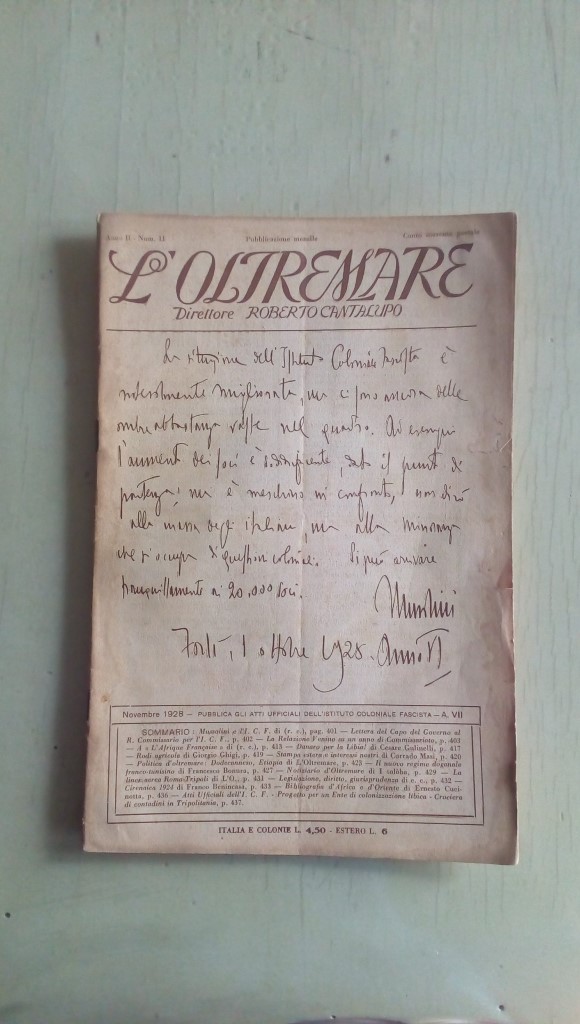 Anno II - Num. 11 Pubblicazione mensile Conto corrente postale
L'OLTREMARE
Direttore ROBERTO CANTALUPO
La situazione dell'Istituto Coloniale Fascista è
notevolmente migliorata, ma ci sono ancora delle
ombre abbastanza vaste nel quadro. Ad esempio
l'aumento dei soci è soddisfacente, dato il punto di
partenza; ma è meschino in confronto, non dirò
alla massa degli italiani, ma alla minoranza
che si occupa di questioni coloniali. Si può arrivare
tranquillamente ai 20.000 soci.
Mussolini
Forlì, 1 ottobre 1928. Anno VI
Novembre 1928 — PUBBLICA GLI ATTI UFFICIALI DELL'ISTITUTO COLONIALE FASCISTA — A. VII
SOMMARIO: Mussolini e l'I. C. F. di (r. c.), pag. 401 — Lettera del Capo del Governo al
R. Commissario per l'I. C. F., p. 402 — La Relazione Venino su un anno di Commissariato, p. 403
— A « L'Afrique Française » di (r. c.), p. 415 — Danaro per la Libia! di Cesare Galimelli, p. 417
— Rodi agricola di Giorgio Ghigi, p. 419 — Stampa estera e interessi nostri di Corrado Masi, p. 420
— Politica d'oltremare: Dodecanneso, Etiopia di L'Oltremare, p. 423 — Il nuovo regime doganale
franco-tunisino di Francesco Bonura, p. 427 — Notiziario d'Oltremare di I taliba, p. 429 — La
linea aerea Roma-Tripoli di L'O., p. 431 — Legislazione, diritto, giurisprudenza di e. c., p. 432 —
Cirenaica 1928 di Franco Bencivenga, p. 433 — Bibliografia d'Africa e d'Oriente di Ernesto Cuci-
notta, p. 436 — Atti Ufficiali dell'I. C. F. - Progetto per un Ente di colonizzazione libica - Crociera
di contadini in Tripolitania, p. 437.
ITALIA E COLONIE L. 4,50 - ESTERO L. 6